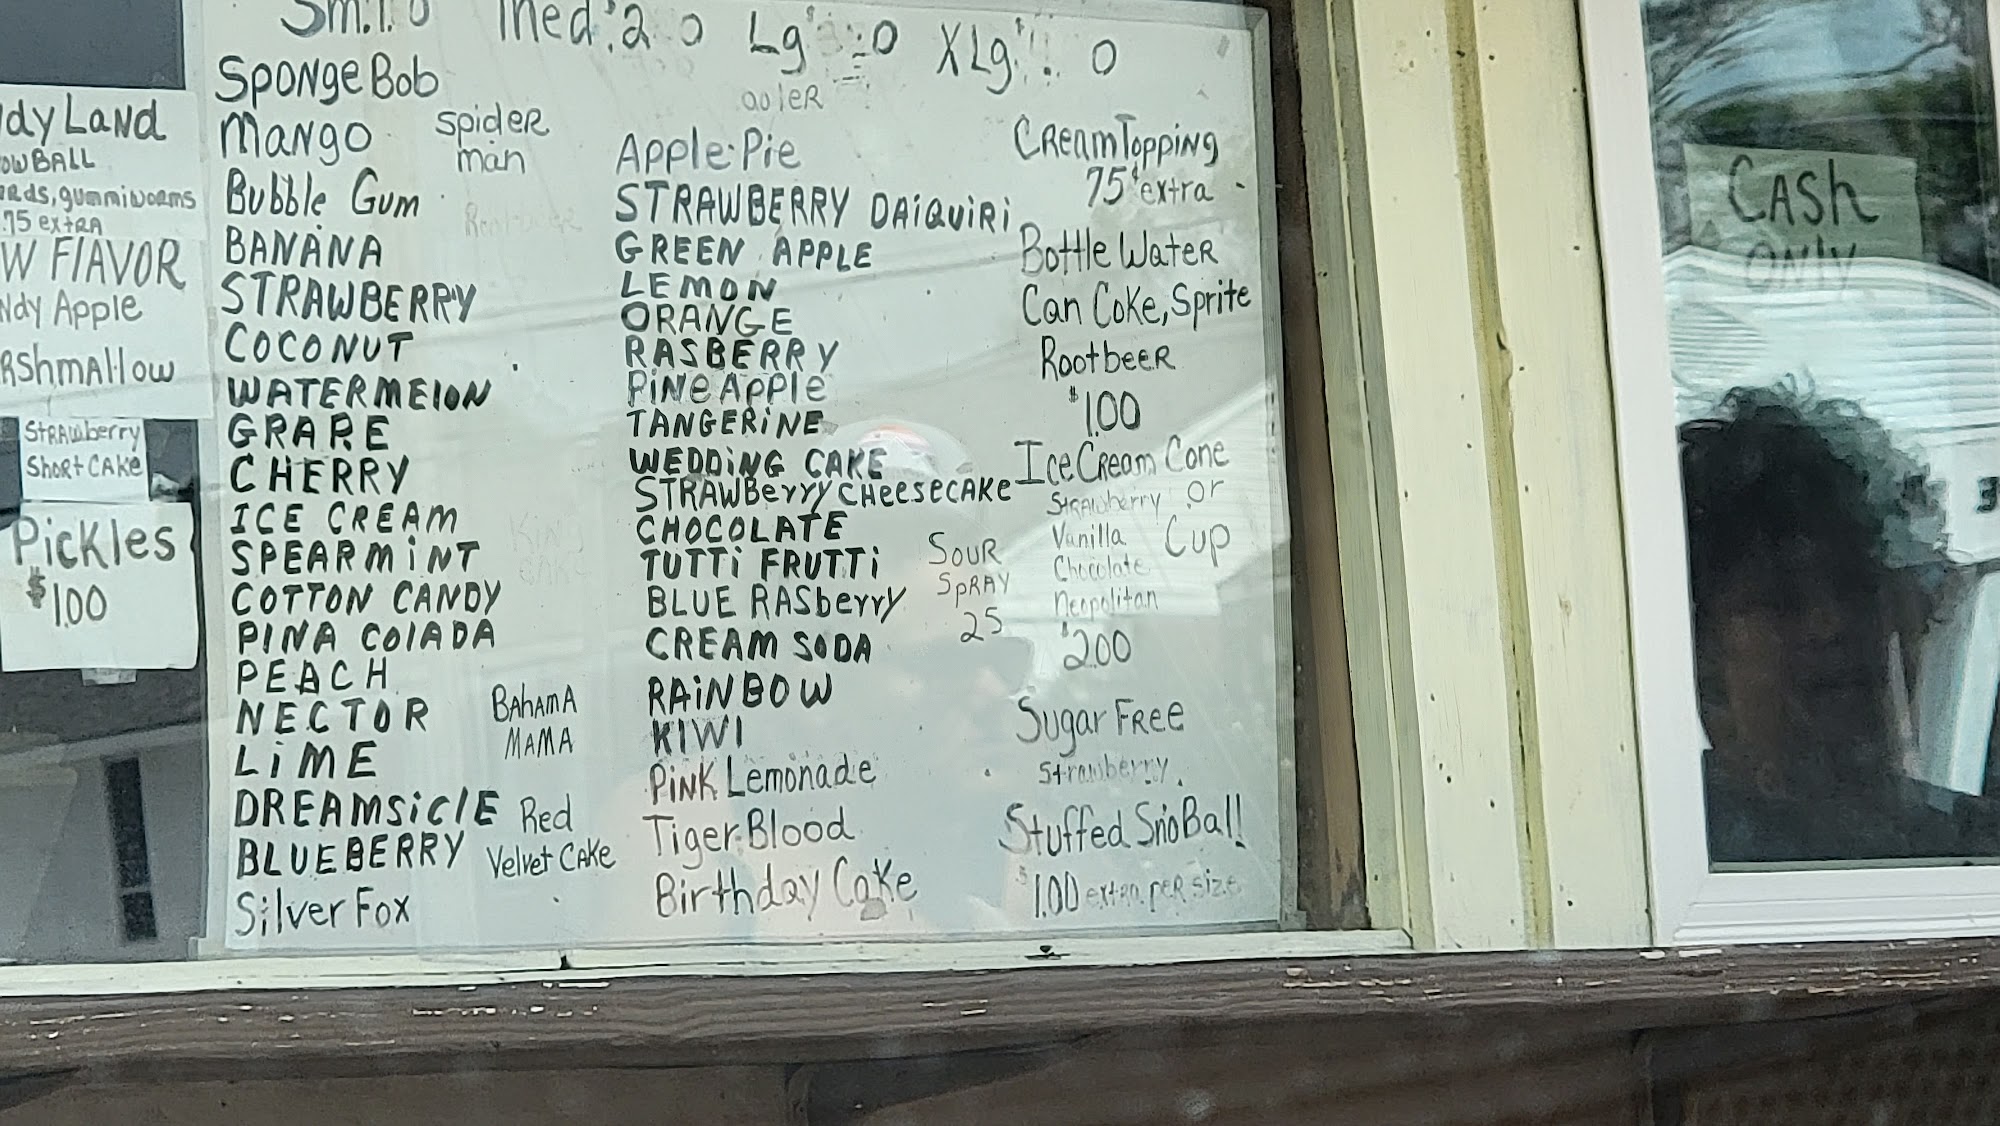 dy Land
OWBALL
gummiworms
.75 extra
W FlAVOR
Ndy Apple
RShmAllow
Strawberry
Short Cake
Pickles
$1.00
Sm.
med.
Lg
XLg
SpongeBob
Mango
Spider
man
Bubble Gum
Rootbeer
BANANA
STRAWBERRY
COCONUT
WATERMElON
GRAPE
CHERRY
ICE CREAM
KING
CAKE
SPEARMiNT
COTTON CANDY
PINA COlADA
PEACH
NECTOR
BAHAMA
MAMA
LiME
DREAMSiClE
Red
Velvet CAKe
BLUEBERRY
Silver Fox
Apple Pie
STRAWBERRY DAiQUiRi
GREEN APPLE
LEMON
ORANGE
RASBERRY
PiNeApple
TANGERiNE
WEDDiNG CAKE
STRAWBerryCHeeseCAKe
CHOCOLATE
TUTTi FRUTTi
BLUE RASberry
CREAM SODA
SOUR
SpRAY
25
RAiNBOW
KIWI
PiNK Lemonade
Tiger Blood
Birthday Cake
CReamTopping
75¢ extra
Bottle Water
Can Coke, Sprite
RootbeeR
$1.00
Ice Cream Cone
or
Cup
Strawberry
Vanilla
Chocolate
Neopolitan
$2.00
Sugar Free
Strawberry
Stuffed SnoBall
$1.00 extra per size
CASh
ONly
3